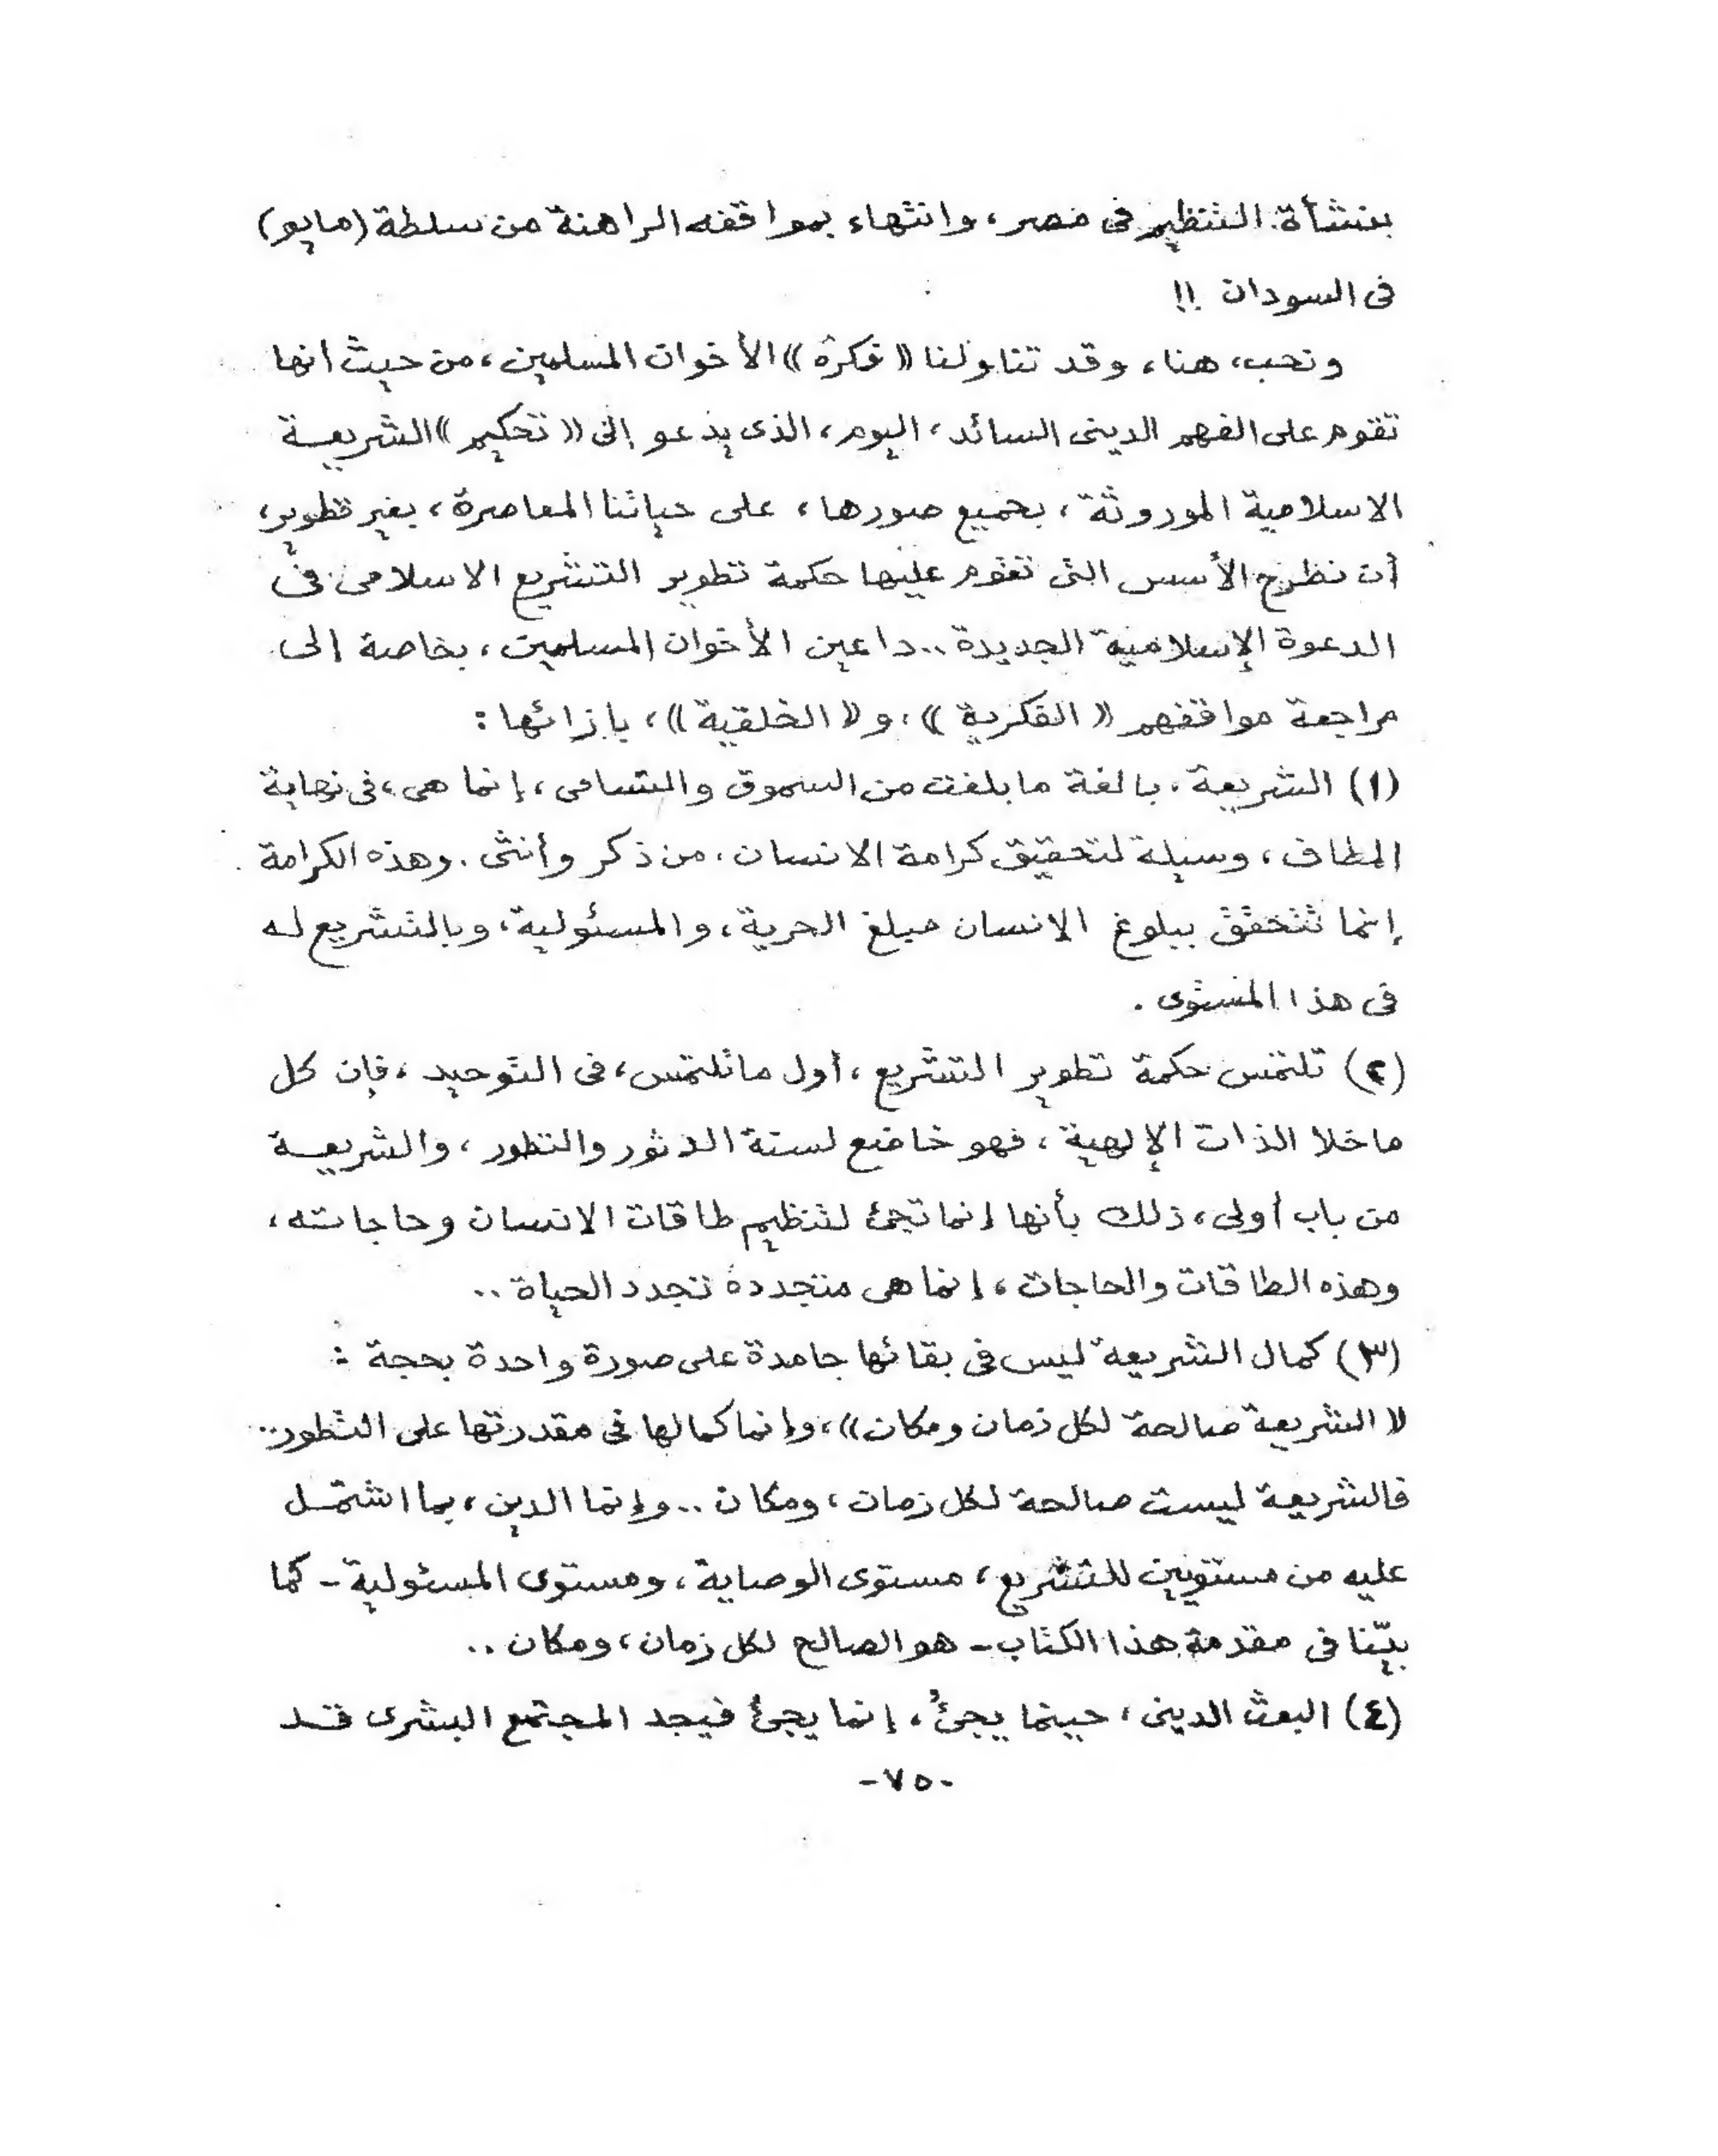 بنشأة التنظيم فى مصر، وانتهاء بمواقفه الراهنة من سلطة (مايو)
فى السودان !!
ونحب، هنا، وقد تناولنا «فكرة» الأخوان المسلمين، من حيث انها
تقوم على الفهم الدينى السائد، اليوم، الذى يدعو إلى «تحكيم» الشريعة
الاسلامية الموروثة، بجميع صورها، على حياتنا المعاصرة، بغير تطوير،
أن نطرح الأسس التى تقوم عليها حكمة تطوير التشريع الاسلامى فى
الدعوة الإسلامية الجديدة.. داعين الأخوان المسلمين، بخاصة إلى
مراجعة مواقفهم «الفكرية»، و«الخلقية»، بإزائها:
(١) الشريعة، بالغة ما بلغت من السموق والتسامى، إنما هى، فى نهاية
المطاف، وسيلة لتحقيق كرامة الانسان، من ذكر وأنثى. وهذه الكرامة
إنما تتحقق ببلوغ الإنسان مبلغ الحرية، والمسئولية، وبالتشريع له
فى هذا المستوى.
(٢) تلتمس حكمة تطوير التشريع، أول ما تلتمس، فى التوحيد، فإن كل
ماخلا الذات الإلهية، فهو خاضع لسنة الدثور والتطور، والشريعة
من باب أولى، ذلك بأنها إنما تجئ لتنظيم طاقات الانسان وحاجاته،
وهذه الطاقات والحاجات، إنما هى متجددة تجدد الحياة..
(٣) كمال الشريعة ليس فى بقائها جامدة على صورة واحدة بحجة:
«الشريعة صالحة لكل زمان ومكان»، وإنما كمالها فى مقدرتها على التطور..
فالشريعة ليست صالحة لكل زمان، ومكان.. وإنما الدين، بما اشتمل
عليه من مستويين للتشريع، مستوى الوصاية، ومستوى المسئولية - كما
بيّنا فى مقدمة هذا الكتاب - هو الصالح لكل زمان، ومكان..
(٤) البعث الدينى، حينما يجئ، إنما يجئ فيجد المجتمع البشرى قد
-٧٥-